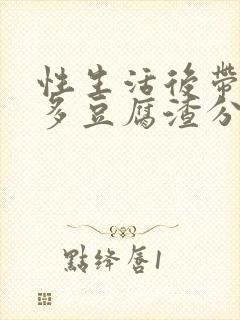 性生活後帶
多豆腐渣分
點絳唇1